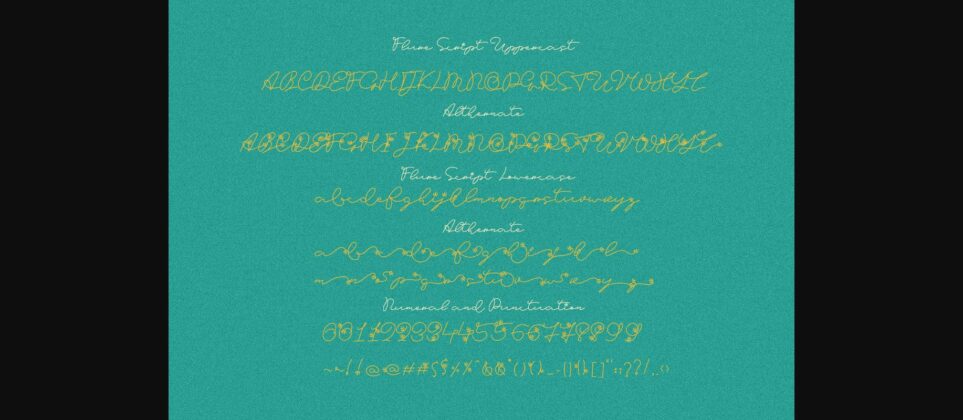 Flure Script Uppercast
ABCDEFGHIJKLMNOPQRSTUVWXYZ
Althernate
ABCDEFGHIJKLMNOPQRSTUVWXYZ
Flure Script Lowercase
abcdefghijklmnopqrstuvwxyz
Althernate
abcdefghijkl
mnopqrstuvwxyz
Numeral and Punctuation
00112233445566778899
@@##§§%%